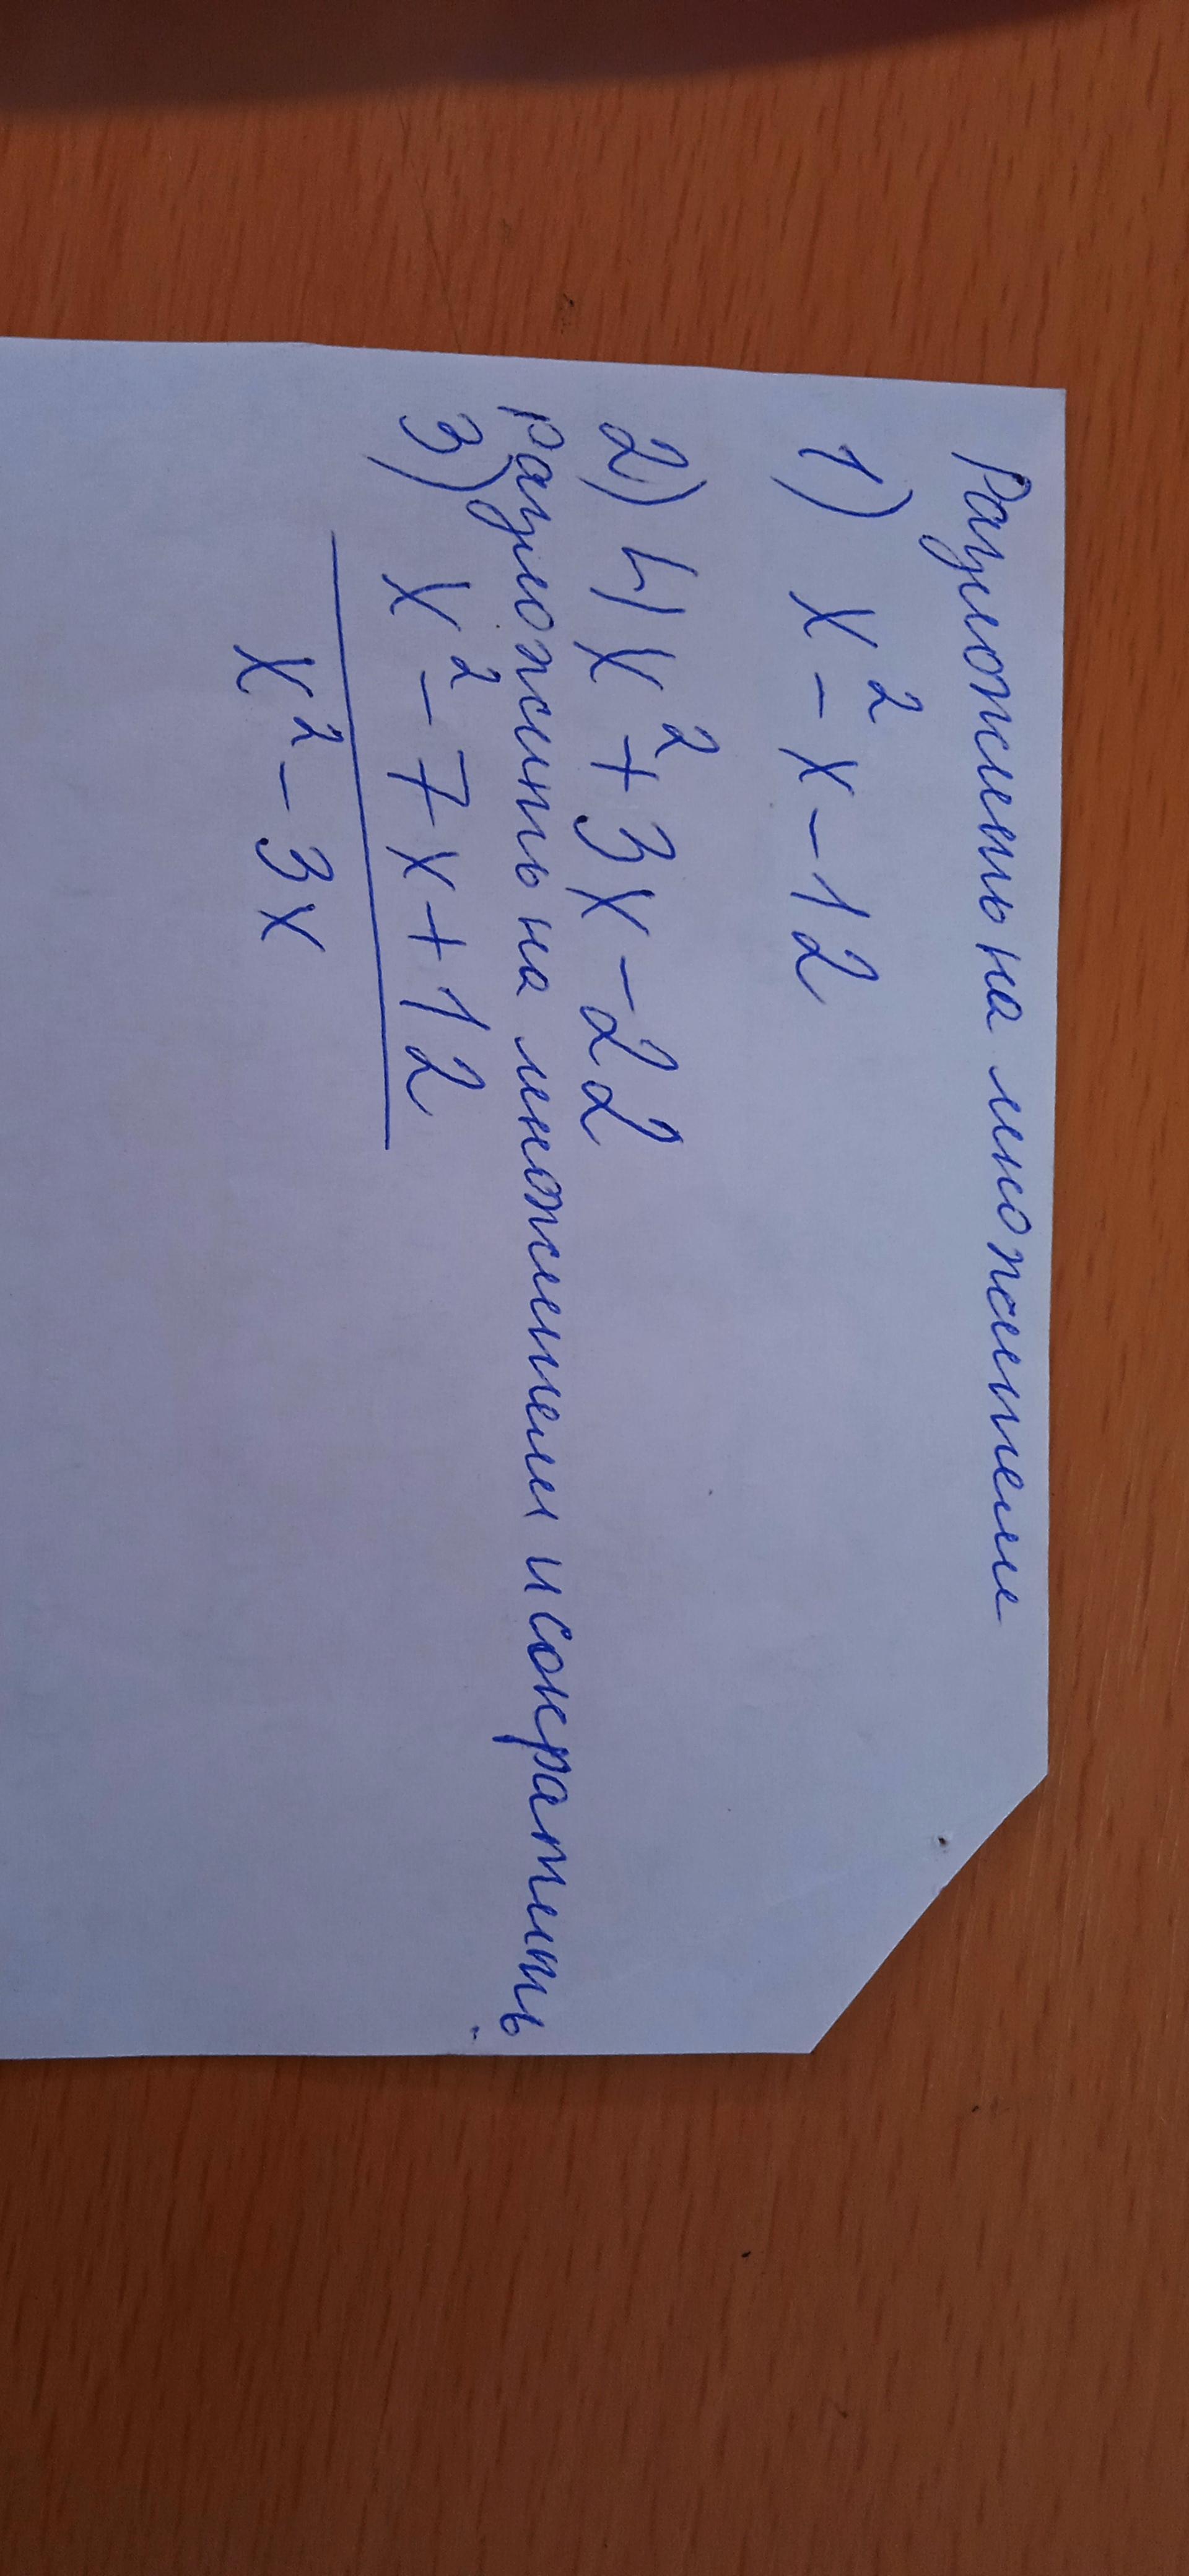 Разложить на множители
1) x² - x - 12
2) 4x² + 3x - 22
разложить на множители и сократить
3) x² - 7x + 12
x² - 3x